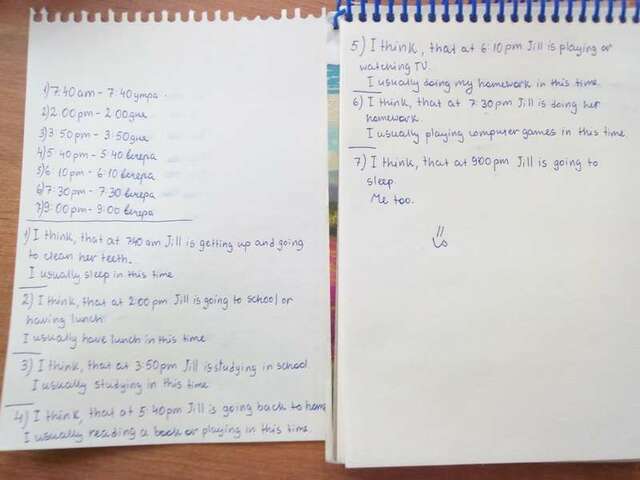 1) 7:40 am - 7:40 утра.
2) 2:00 pm - 2:00 дня
3) 3:50 pm - 3:50 дня.
4) 5:40 pm - 5:40 вечера
5) 6:10 pm - 6:10 вечера
6) 7:30 pm - 7:30 вечера
7) 9:00 pm - 9:00 вечера
1) I think, that at 740 am Jill is getting up and going
to clean her teeth.
I usually sleep in this time
2) I think, that at 2:00 pm Jill is going to school or
having lunch.
I usually have lunch in this time.
3) I think, that at 3:50 pm Jill is studying in school.
I usually studying in this time
4) I think, that at 5:40 pm Jill is going back to home
I usually reading a book or playing in this time.
5) I think, that at 6:10 pm Jill is playing or
watching TV.
I usually doing my homework in this time.
6) I think, that at 7:30 pm Jill is doing her
homework.
I usually playing computer games in this time.
7) I think, that at 900 pm Jill is going to
sleep.
Me too.